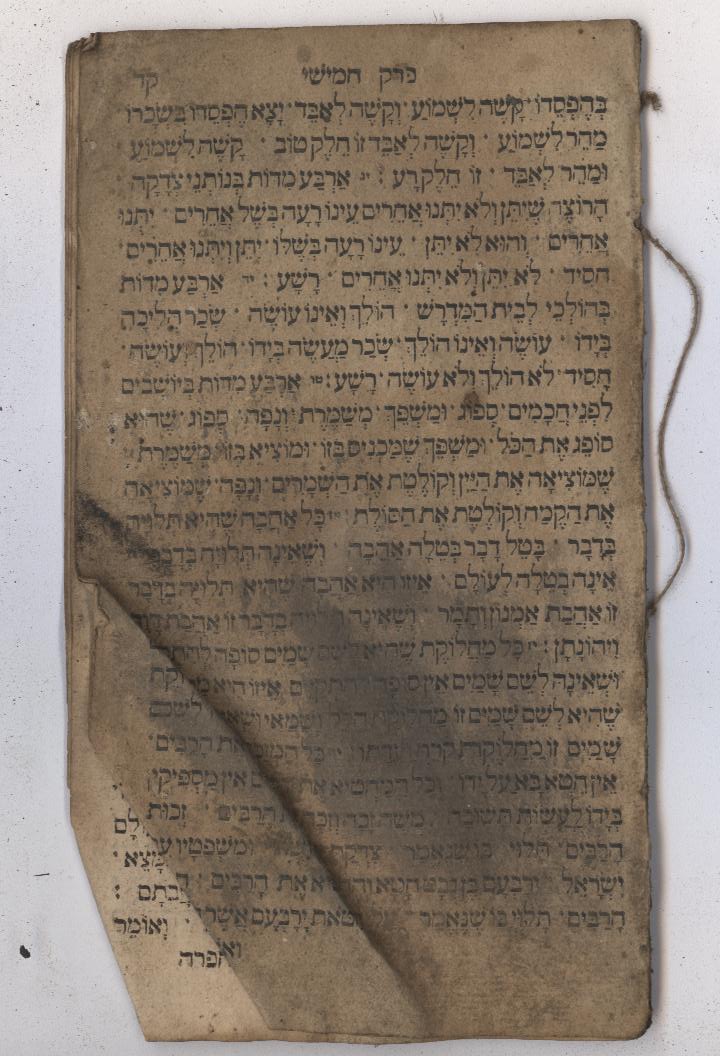 פרק חמישי קד
בְּהֶפְסֵדוֹ · קָשֶׁה לִשְׁמוֹעַ · וְקָשֶׁה לְאַבֵּד · יָצָא הֶפְסֵדוֹ בִּשְׂכָרוֹ
מַהֵר לִשְׁמוֹעַ · וְקָשֶׁה לְאַבֵּד זוֹ חֵלֶק טוֹב · קָשֶׁה לִשְׁמוֹעַ
וּמַהֵר לְאַבֵּד · זוֹ חֵלֶק רָע : יג אַרְבַּע מִדּוֹת בְּנוֹתְנֵי צְדָקָה ·
הָרוֹצֶה שֶׁיִּתֵּן וְלֹא יִתְּנוּ אֲחֵרִים עֵינוֹ רָעָה בְּשֶׁל אֲחֵרִים · יִתְּנוּ
אֲחֵרִים · וְהוּא לֹא יִתֵּן · עֵינוֹ רָעָה בְּשֶׁלּוֹ · יִתֵּן וְיִתְּנוּ אֲחֵרִים ·
חָסִיד · לֹא יִתֵּן וְלֹא יִתְּנוּ אֲחֵרִים · רָשָׁע : יד אַרְבַּע מִדּוֹת
בְּהוֹלְכֵי לְבֵית הַמִּדְרָשׁ · הוֹלֵךְ וְאֵינוֹ עוֹשֶׂה · שְׂכַר הֲלִיכָה
בְּיָדוֹ · עוֹשֶׂה וְאֵינוֹ הוֹלֵךְ · שְׂכַר מַעֲשֶׂה בְּיָדוֹ · הוֹלֵךְ וְעוֹשֶׂה ·
חָסִיד · לֹא הוֹלֵךְ וְלֹא עוֹשֶׂה · רָשָׁע : טו אַרְבַּע מִדּוֹת בְּיוֹשְׁבִים
לִפְנֵי חֲכָמִים · סְפוֹג · וּמַשְׁפֵּךְ · מְשַׁמֶּרֶת · וְנָפָה · סְפוֹג · שֶׁהוּא
סוֹפֵג אֶת הַכֹּל · וּמַשְׁפֵּךְ שֶׁמַּכְנִיס בְּזוֹ · וּמוֹצִיא בְּזוֹ · מְשַׁמֶּרֶת ·
שֶׁמּוֹצִיאָה אֶת הַיַּיִן וְקוֹלֶטֶת אֶת הַשְּׁמָרִים · וְנָפָה · שֶׁמּוֹצִיאָה
אֶת הַקֶּמַח וְקוֹלֶטֶת אֶת הַסּוֹלֶת · כָּל אַהֲבָה שֶׁהִיא תְּלוּיָה
בְּדָבָר · בָּטֵל דָּבָר בְּטֵלָה אַהֲבָה · וְשֶׁאֵינָהּ תְּלוּיָה בְּדָבָר
אֵינָהּ בְּטֵלָה לְעוֹלָם · אֵיזוֹ הִיא אַהֲבָה שֶׁהִיא תְּלוּיָה בְּדָבָר
זוֹ אַהֲבַת אַמְנוֹן וְתָמָר · וְשֶׁאֵינָהּ תְּלוּיָה בְּדָבָר זוֹ אַהֲבַת דָּוִד
וִיהוֹנָתָן : כָּל מַחֲלוֹקֶת שֶׁהִיא לְשֵׁם שָׁמַיִם סוֹפָהּ
וְשֶׁאֵינָהּ לְשֵׁם שָׁמַיִם אֵין סוֹפָהּ לְהִתְקַיֵּם · אֵיזוֹ הִיא
שֶׁהִיא לְשֵׁם שָׁמַיִם זוֹ מַחֲלוֹקֶת הִלֵּל וְשַׁמַּאי לְשֵׁם
שָׁמַיִם זוֹ מַחֲלוֹקֶת קֹרַח כָּל הַרַבִּים ·
אֵין חֵטְא בָּא עַל יָדוֹ · וְכָל הַמַּחֲטִיא אֵין מַסְפִּיקִין
בְּיָדוֹ לַעֲשׂוֹת תְּשׁוּבָה · מֹשֶׁה זָכָה הָרַבִּים · זְכוּת
הָרַבִּים · תָּלוּי בּוֹ שֶׁנֶּאֱמַר · צִדְקַת וּמִשְׁפָּטָיו
יִשְׂרָאֵל · יָרָבְעָם בֶּן נְבָט חָטָא אֶת הָרַבִּים ·
הָרַבִּים · תָּלוּי בּוֹ שֶׁנֶּאֱמַר · יָרָבְעָם אֲשֶׁר
וְאוֹמֵר